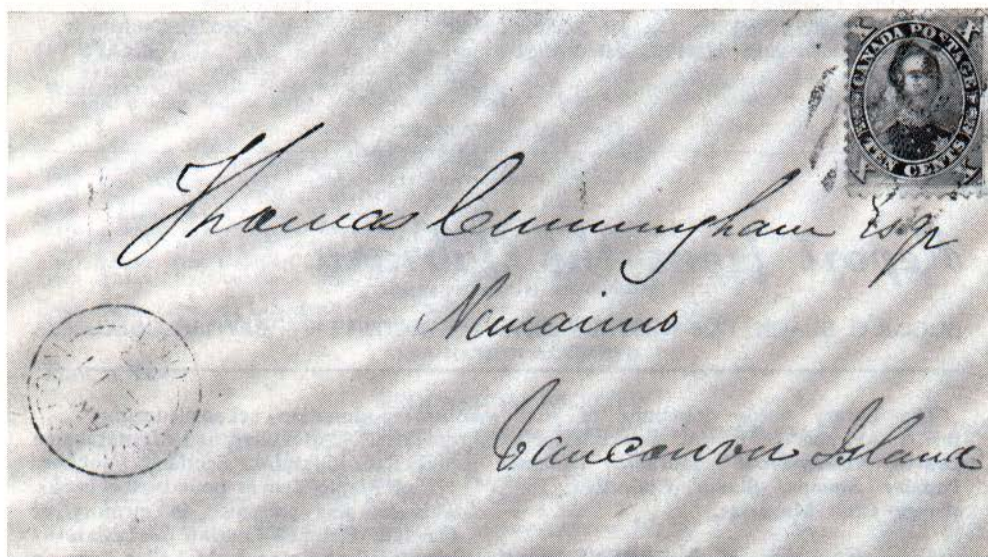 CANADA POSTAGE
TEN CENTS
Thomas Cunningham Esqr
Nanaimo
Vancouver Island